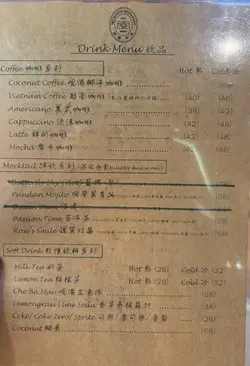 Drink Menu 飲品
Coffee 咖啡系列 Hot 熱 Cold 冷
Coconut Coffee 椰 咖啡 (68)
Vietnam Coffee 越南咖啡 (40) (46)
Americano 美式咖啡 (38) (42)
Cappuccino 泡沫咖啡 (42) (48)
Latte 鮮奶咖啡 (42) (48)
Mocha 摩卡咖啡 (42) (48)
Mocktail 系列
Pandan Mojito (68)
Passion Time 百子茶 (68)
Rosie's Smile (68)
Soft Drink 軟懂飲料系列
Milk Tea 奶茶 Hot 熱 (28) Cold 冷 (32)
Lemon Tea 檸檬茶 Hot 熱 (28) Cold 冷 (32)
Che Ba Mau (68)
Lemongrass Lime Soda 香茅青檸梳打 (58)
Coke/ Coke Zero/ Sprite 可樂/ 零可樂/ 雪碧 (28)
Coconut 椰青